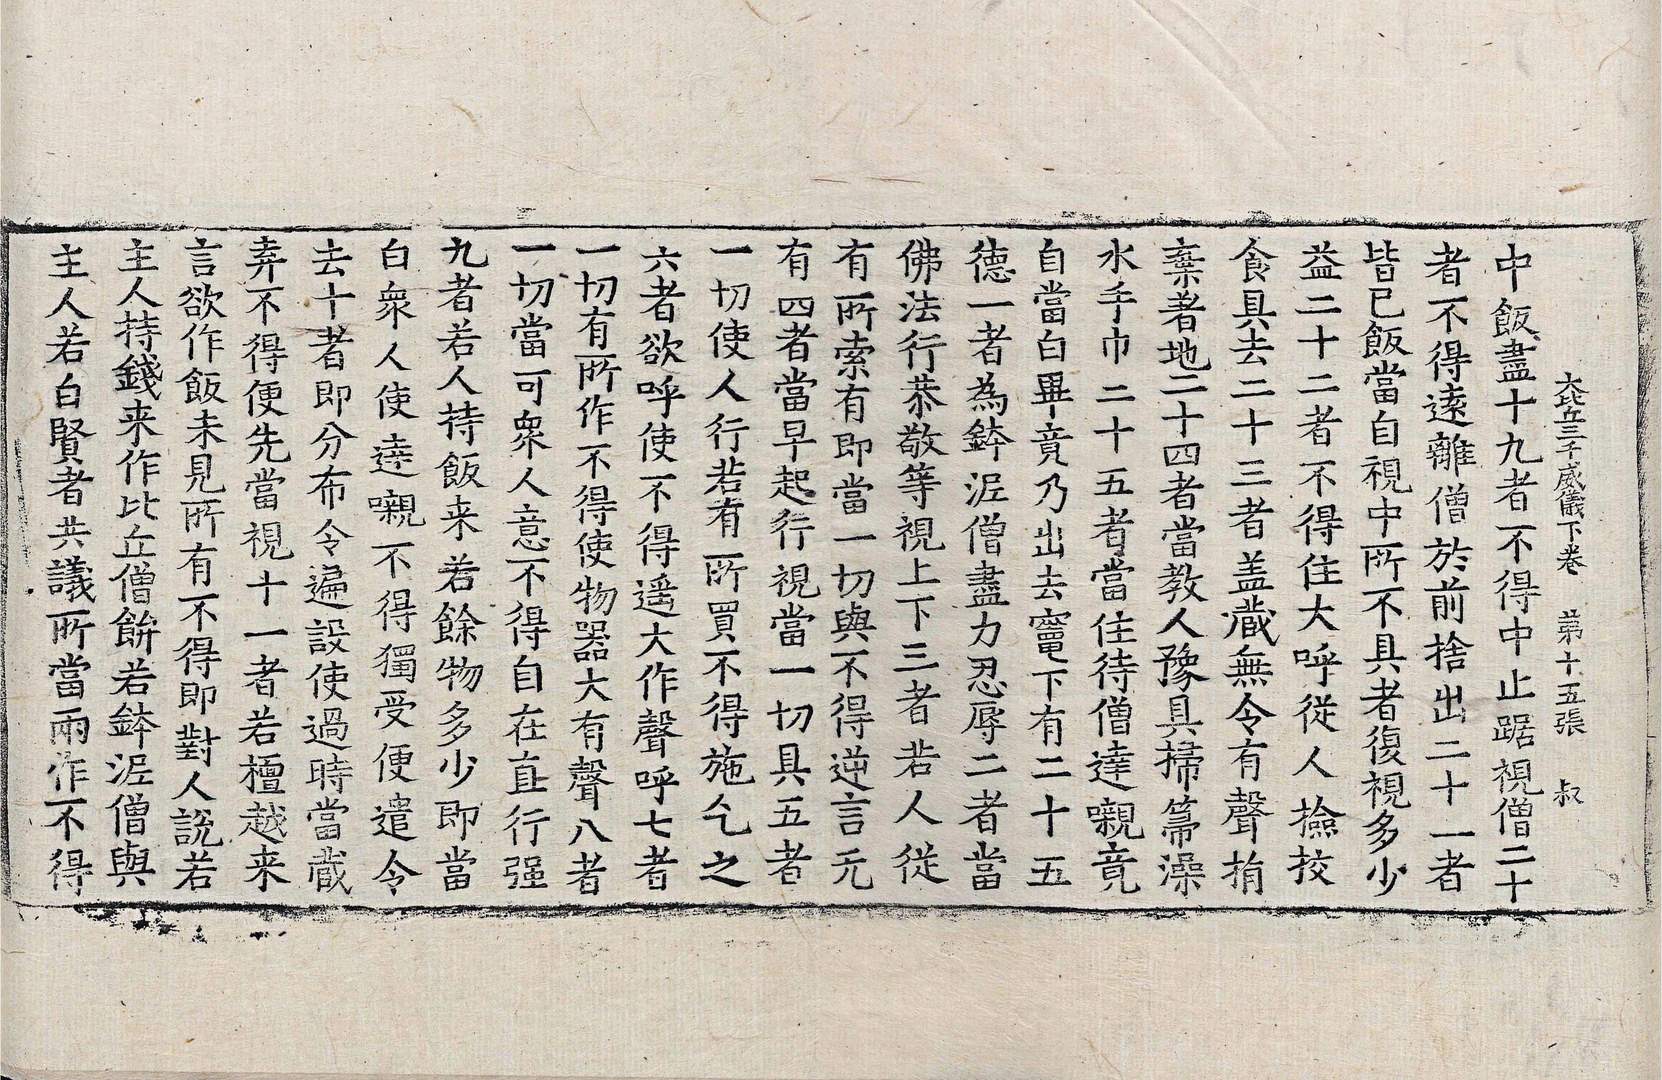 大比丘三千威儀下卷 第十五張 叔
中飯盡十九者不得中止踞視僧二十
者不得遠離僧於前捨出二十一者
皆已飯當自視中所不具者復視多少
益二十二者不得住大呼從人撿挍
食具去二十三者盖藏無令有聲捐
棄著地二十四者當教人豫具掃箒澡
水手巾二十五者當住待僧達嚫竟
自當白畢竟乃出去竈下有二十五
德一者為鉢泥僧盡力忍辱二者當
佛法行恭敬等視上下三者若人從
有所索有即當一切與不得逆言无
有四者當早起行視當一切具五者
一切使人行若有所買不得施乞之
六者欲呼使不得遥大作聲呼七者
一切有所作不得使物器大有聲八者
一切當可衆人意不得自在直行强
九者若人持飯来若餘物多少即當
白衆人使達嚫不得獨受便遣令
去十者即分布令遍設使過時當藏
弃不得便先當視十一者若檀越来
言欲作飯未見所有不得即對人說若
主人持錢来作比丘僧餅若鉢泥僧與
主人若白賢者共議所當兩作不得